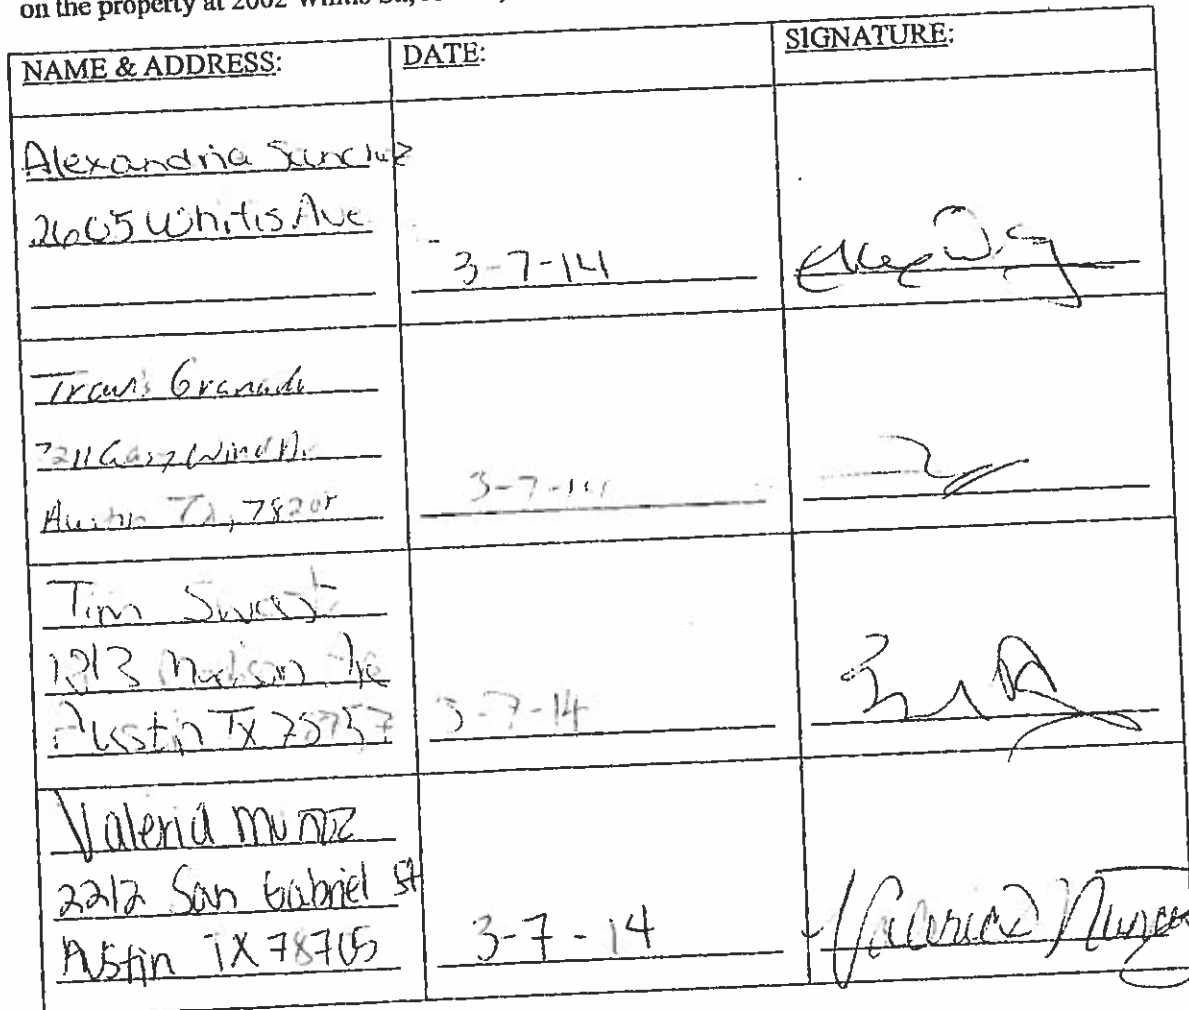 on the property at 2002 Whitis
NAME & ADDRESS: DATE: SIGNATURE:
Alexandria Sanchez
2605 Whitis Ave
3-7-14
Granada
Wind Dr.
Austin Tx, 78
3-7-14
Tim
1213 Madison
Austin TX 78757
3-7-14
Valeria Munoz
2212 San Gabriel St
Austin TX 78705
3-7-14